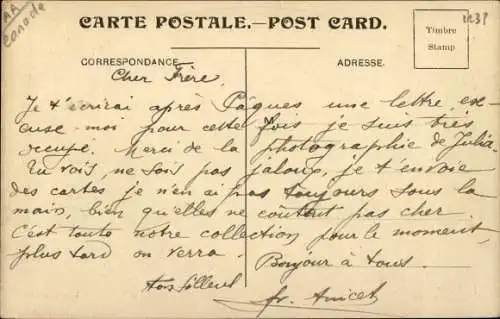 AA
Canada
1238
CARTE POSTALE.—POST CARD.
Timbre
Stamp
CORRESPONDANCE
ADRESSE.
Cher Frère,
Je t'écrirai après Pâques une lettre, ex-
cuse-moi pour cette fois je suis très
occupé. Merci de la photographie de Julia.
Tu vois, ne sois pas jaloux, je t'envoie
des cartes je n'en ai pas toujours sous la
main, bien qu'elles ne coûtent pas cher
C'est toute notre collection pour le moment,
plus tard on verra.
Bonjour à tous.
fr. Anicet